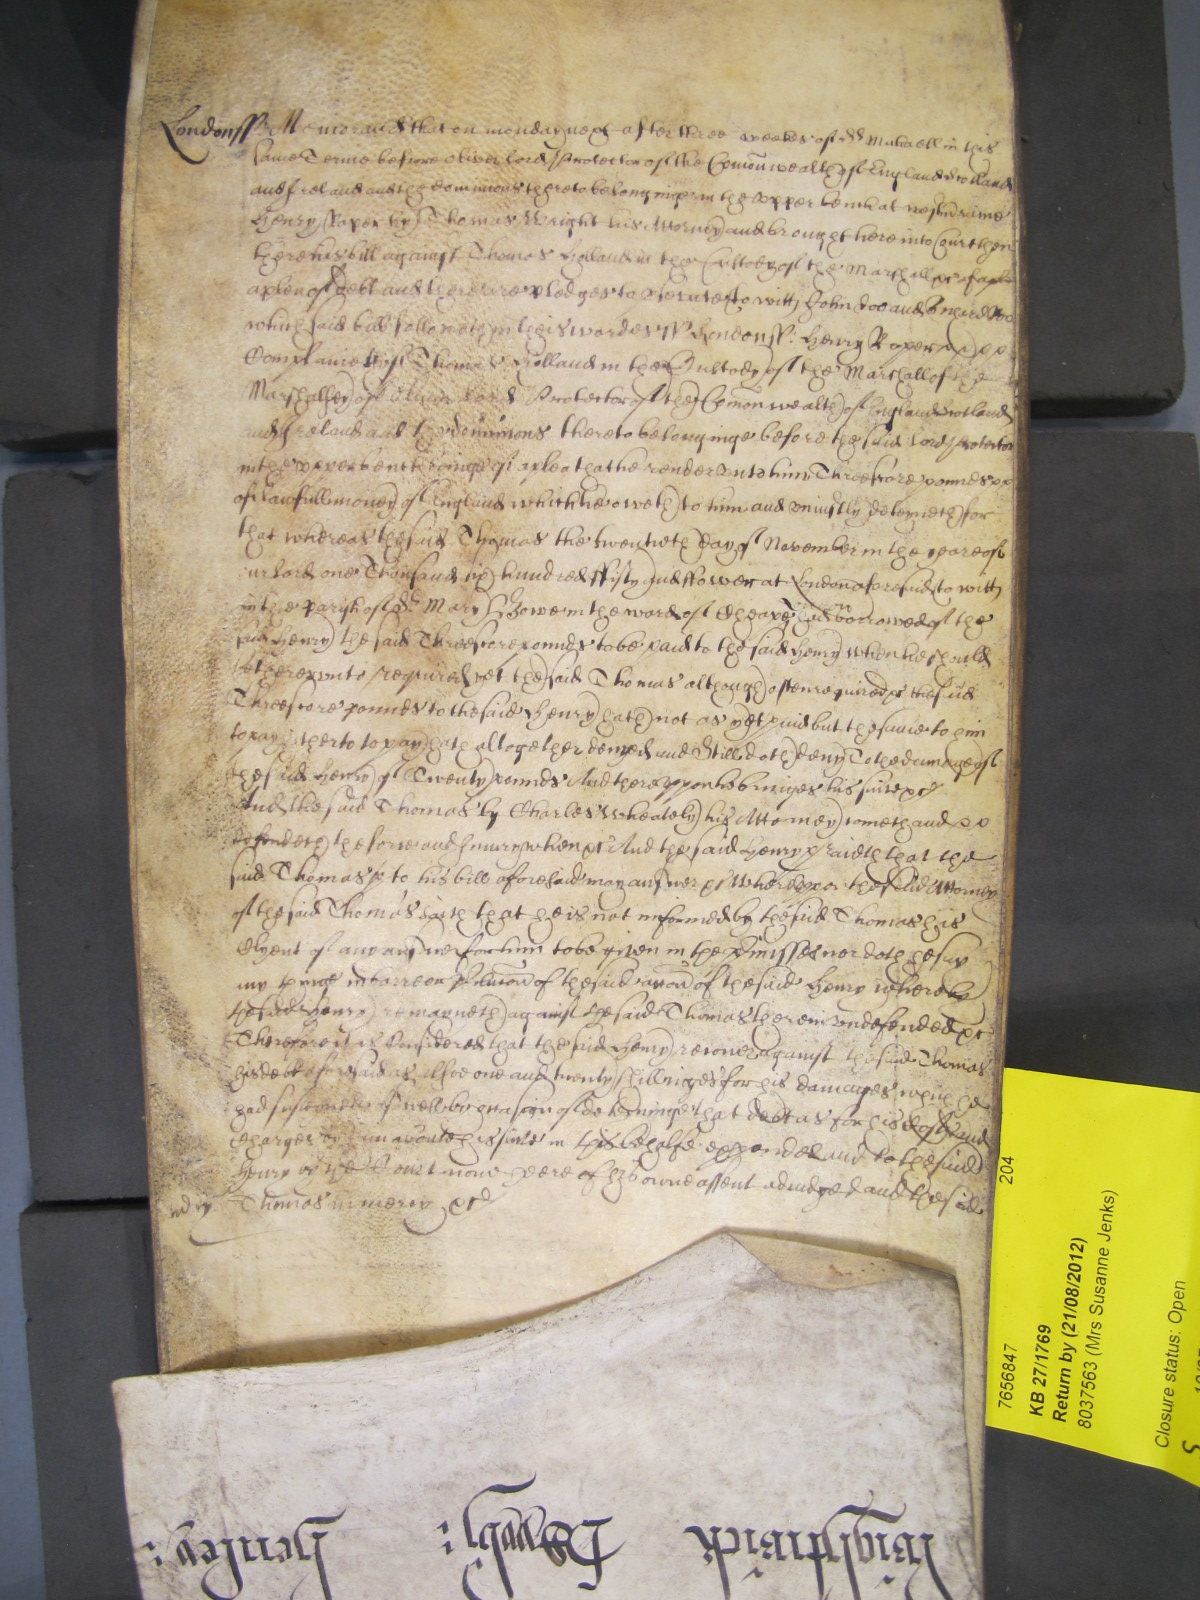 London ss Memorand that on monday next after three weekes of St Michaell in this
same Terme before Oliver Lord Protector of the Comon wealth of England Scotland
and Ireland and the dominions thereto belonginge in the upper bench at westm came
Henry Roper by Thomas Wright his Attorney and brought here into Court then
there his bill against Thomas Holland in the Custody of the Marshall &c of a plea
a plea of debt and there are pledges to prosecute to witt John Doo and Richard Roo
which said bill followeth in theis wordes ss London ss: Henry Roper
Complaineth of Thomas Holland in the Custody of the Marshall of the
Marshalsey of Oliver Lord Protector of the Comon wealth of England Scotland
and Ireland and the dominions thereto belonginge before the said Lord Protector
in the upper bench beinge of a plea that he render unto him Threescore poundes
of lawfull money of England which he oweth to him and uniustly deteyneth for
that whereas the said Thomas the twentieth day of November in the yeare of
our lord one Thousand six hundred ffifty and ffower at London aforesaid to witt
in the parish of St Mary Bowe in the ward of Cheape had borrowed of the
said Henry the said Threescore poundes to be paid to the said Henry when he should
be thereunto required yet the said Thomas although often required &c the said
Threescore poundes to the said Henry hath not as yet paid but the same to him
to pay hitherto to pay hath altogether denyed and Still doth deny To the damage of
the said Henry of Twenty poundes And thereuppon he bringes his suite &c
And the said Thomas by Charles Wheately his Attorney cometh and
defendeth the force and Iniury when &c And the said Henry prayeth that the
said Thomas to his bill aforesaid may answer &c Whereuppon the said Attorney
of the said Thomas saith that he is not informed by the said Thomas his
Clyent of any answer for him to be given in the p'misses nor doth he say
any thinge in barre or p'clusion of the said accon of the said Henry whereby
the said Henry remayneth against the said Thomas therein undefended &c
Therefore it is Considered that the said Henry recover against the said Thomas
his debt aforesaid as alsoe one and twenty shillinges for his damages which he
had susteined as well by occasion of deteyninge that debt as for his Costes and
charges by him about his suite in this behalfe expended and to the said
Henry by the Court nowe here of his owne assent adiudged and the said
Thomas in mercy &c
Wightwick Eshely: Henley:
204
7656847
KB 27/1769
Return by (21/08/2012)
8037563 (Mrs Susanne Jenks)
Closure status: Open